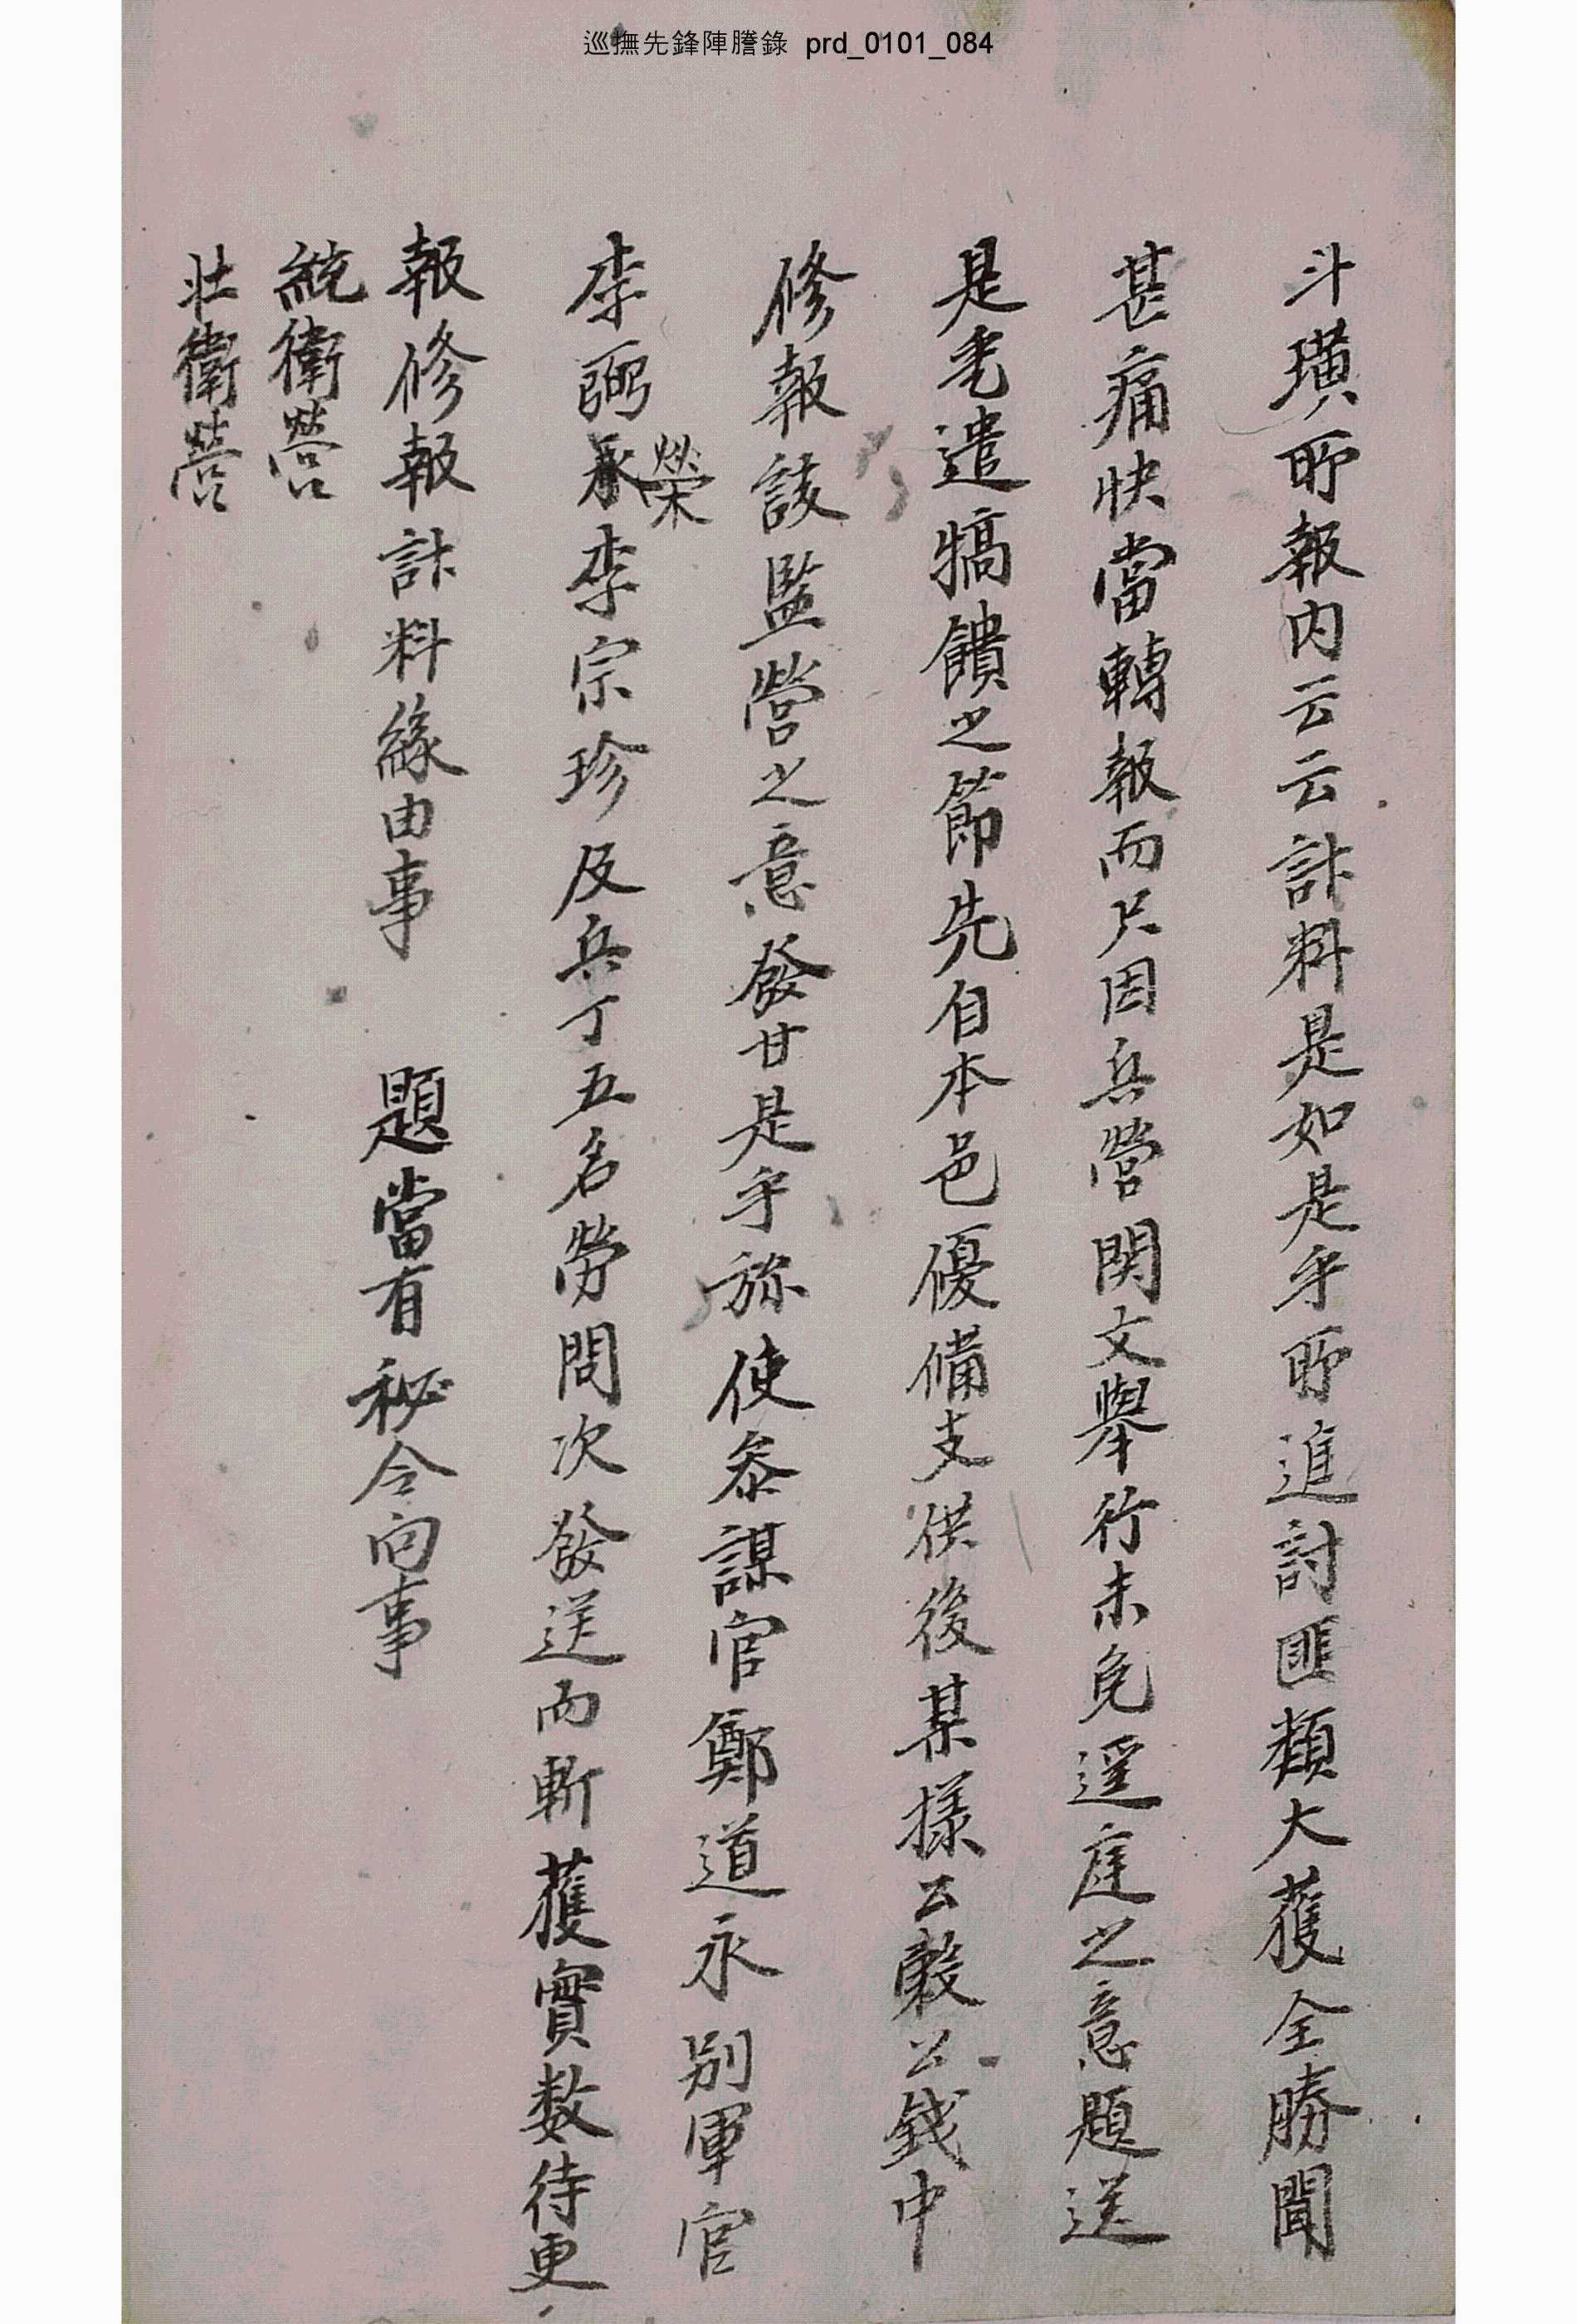 巡撫先鋒陣謄錄 prd_0101_084
斗璜所報内云云計料是如是乎所進討匪類大獲全勝聞
甚痛快當轉報而只因兵營関文舉行未免逕庭之意題送
是乎遣犒饋之節先自本邑優備支供後某樣公穀公錢中
修報該監營之意發甘是乎旀使叅謀官鄭道永別軍官
李弼承榮李宗珍及兵丁五名勞問次發送而斬獲實数待更
報修報計料緣由事 題當有秘令向事
統衛營
壯衛營